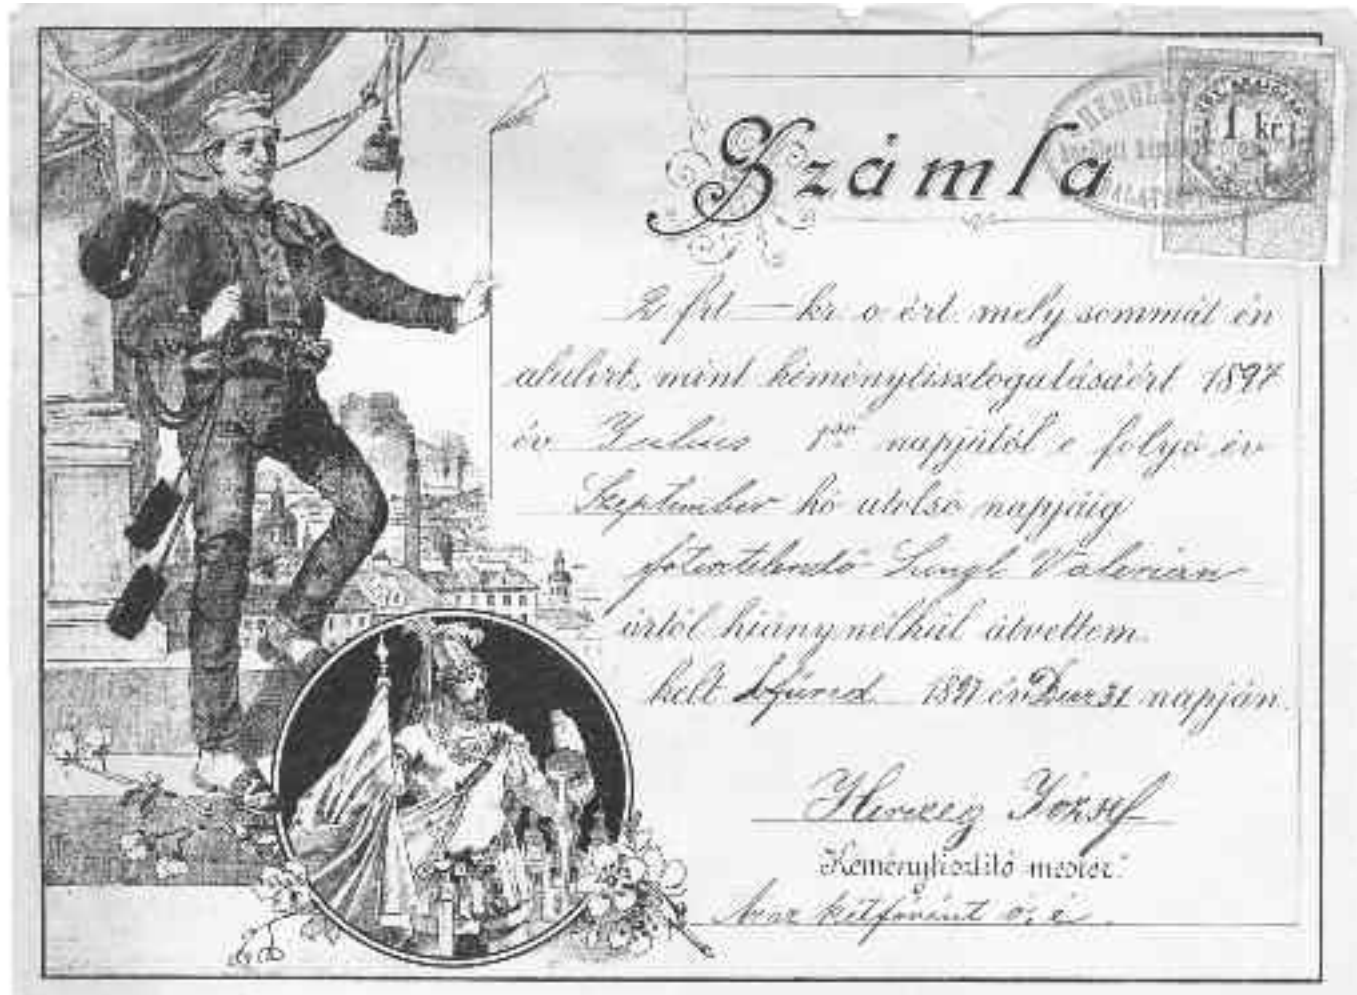 Számla
1 kr
2 frt — kr. o. ért. mely sommát én
alulirt, mint kéménytisztogatásáért 1897
év Julius 1ső napjától e folyó év
Szeptember hó utolsó napjáig
főtisztelendő Lingl Valerián
úrtól hiány nélkül átvettem.
kelt 1897 év 31 napján.
Herczeg József
Kéménytisztitó mester.
Azaz két forint o. é.